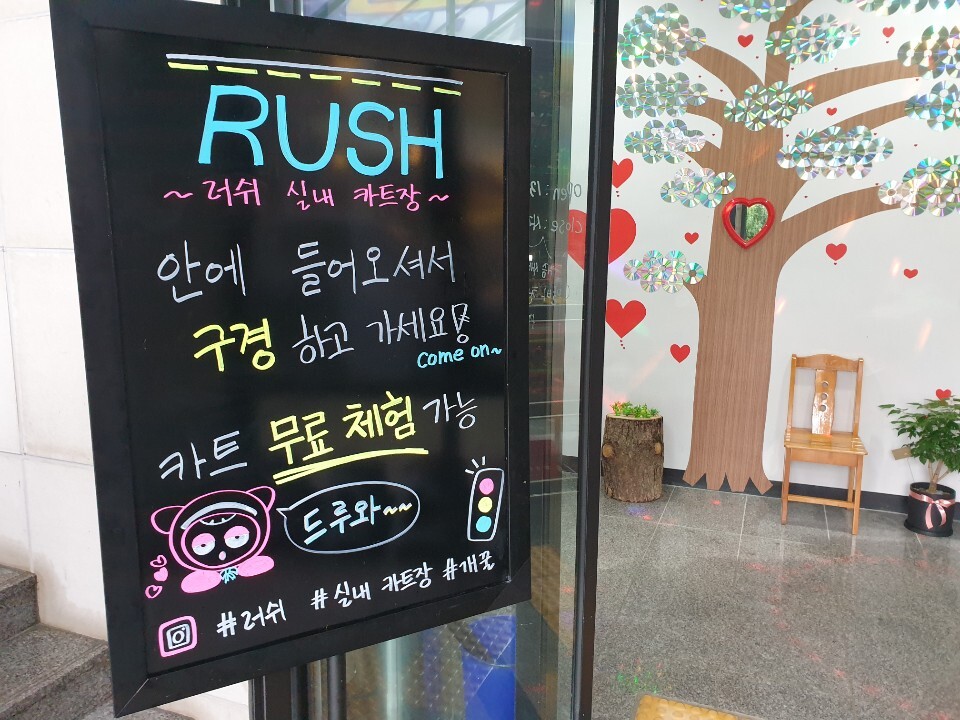 RUSH
~ 러쉬 실내 카트장 ~
안에 들어오셔서
구경 하고 가세요!
come on~
카트 무료 체험 가능
드루와~~
#러쉬 #실내 카트장 #개꿀